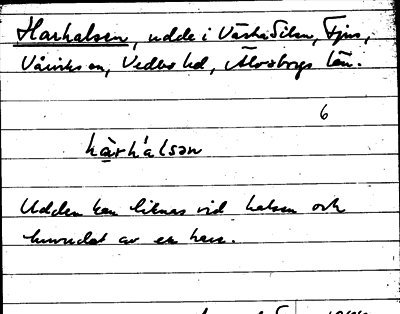 Harhalsen, udde i Västra Silen, Tjus,
Vårviks sn, Vedbo hd, Älvsborgs län.
6
hàrhálsən
Udden kan liknas vid halsen och
huvudet av en hare.